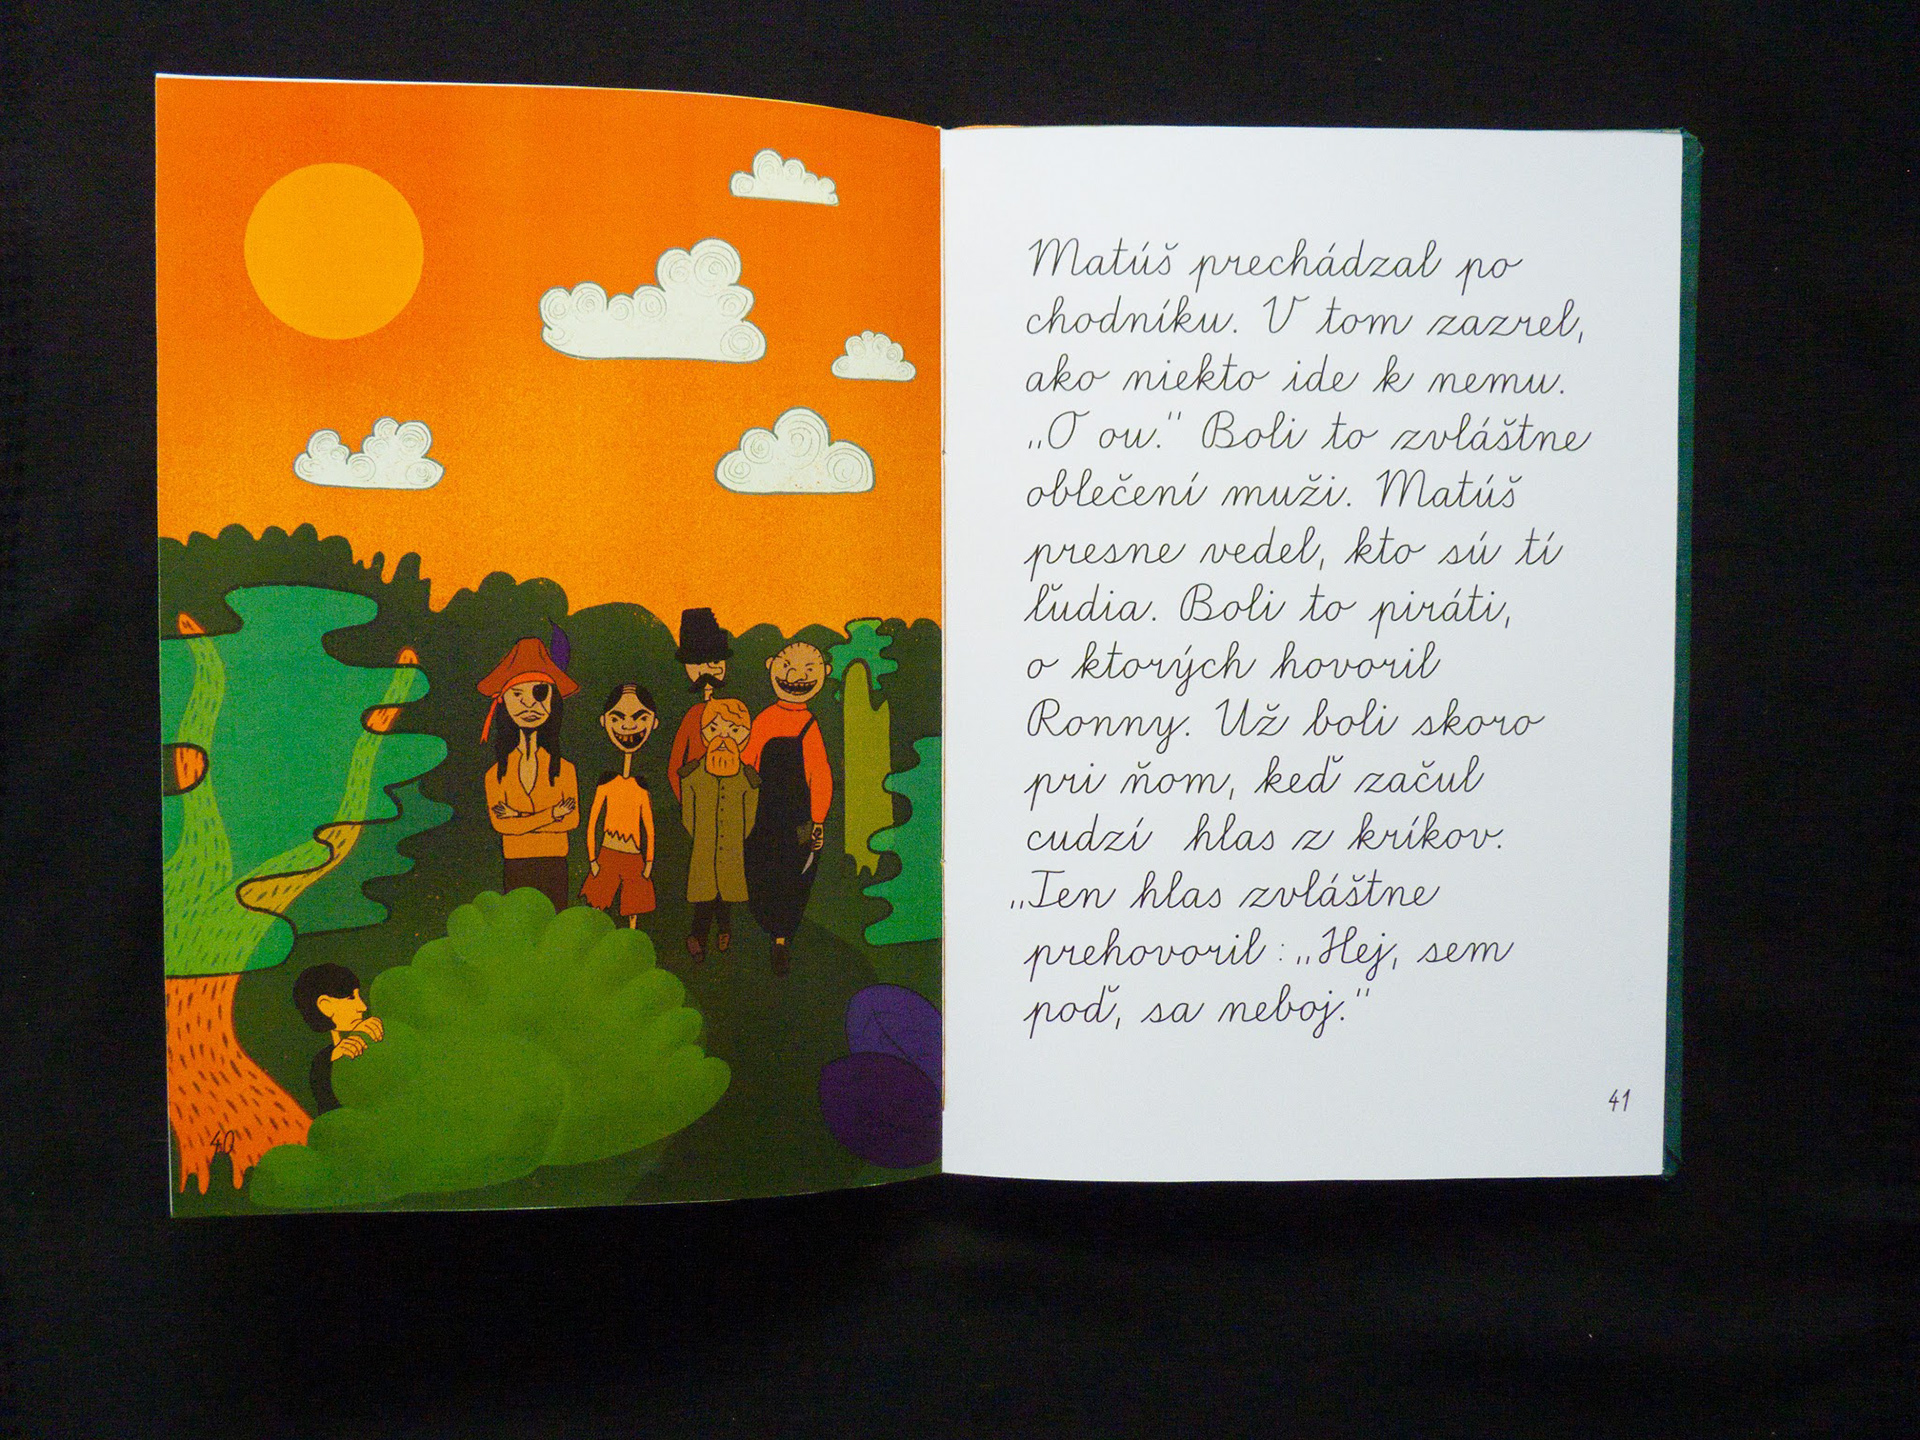 40
Matúš prechádzal po
chodníku. V tom zazrel,
ako niekto ide k nemu.
„O ou." Boli to zvláštne
oblečení muži. Matúš
presne vedel, kto sú tí
ľudia. Boli to piráti,
o ktorých hovoril
Ronny. Už boli skoro
pri ňom, keď začul
cudzí hlas z kríkov.
„Ten hlas zvláštne
prehovoril: „Hej, sem
poď, sa neboj."
41